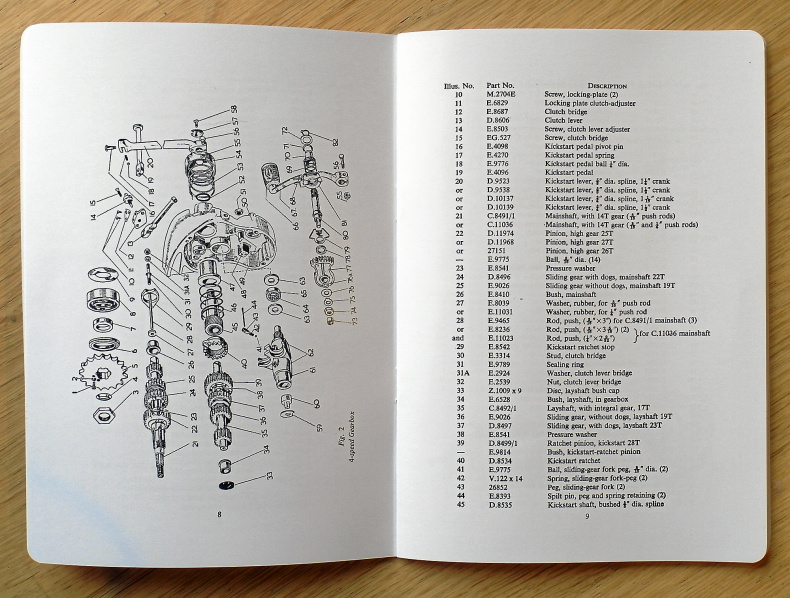 Fig. 2
4-speed Gearbox
8
Illus. No. Part No. Description
10 M.2704E Screw, locking-plate (2)
11 E.6829 Locking plate clutch-adjuster
12 E.8687 Clutch bridge
13 D.8606 Clutch lever
14 E.8503 Screw, clutch lever adjuster
15 EG.527 Screw, clutch bridge
16 E.4098 Kickstart pedal pivot pin
17 E.4270 Kickstart pedal spring
18 E.9776 Kickstart pedal ball ¼" dia.
19 E.4096 Kickstart pedal
20 D.9523 Kickstart lever, dia. spline, crank
or D.9538 Kickstart lever, dia. spline, crank
or D.10137 Kickstart lever, dia. spline, crank
or D.10139 Kickstart lever, dia. spline, crank
21 C.8491/1 Mainshaft, with 14T gear ( push rods)
or C.11036 Mainshaft, with 14T gear ( and ¼" push rods)
22 D.11974 Pinion, high gear 25T
or D.11968 Pinion, high gear 27T
or 27151 Pinion, high gear 26T
— E.9775 Ball, dia. (14)
23 E.8541 Pressure washer
24 D.8496 Sliding gear with dogs, mainshaft 22T
25 E.9026 Sliding gear without dogs, mainshaft 19T
26 E.8410 Bush, mainshaft
27 E.8039 Washer, rubber, for push rod
or E.11031 Washer, rubber, for ¼" push rod
28 E.9465 Rod, push, ( ×3") for C.8491/1 mainshaft (3)
or E.8236 Rod, push, (2) for C.11036 mainshaft
and E.11023 Rod, push,
29 E.8542 Kickstart ratchet stop
30 E.3314 Stud, clutch bridge
31 E.9789 Sealing ring
31A E.2924 Washer, clutch lever bridge
32 E.2539 Nut, clutch lever bridge
33 Z.1009 x 9 Disc, layshaft bush cap
34 E.6528 Bush, layshaft, in gearbox
35 C.8492/1 Layshaft, with integral gear, 17T
36 E.9026 Sliding gear, without dogs, layshaft 19T
37 D.8497 Sliding gear, with dogs, layshaft 23T
38 E.8541 Pressure washer
39 D.8499/1 Ratchet pinion, kickstart 28T
— E.9814 Bush, kickstart-ratchet pinion
40 D.8534 Kickstart ratchet
41 E.9775 Ball, sliding-gear fork peg, dia. (2)
42 V.122 x 14 Spring, sliding-gear fork-peg (2)
43 26852 Peg, sliding-gear fork (2)
44 E.8393 Split pin, peg and spring retaining (2)
45 D.8535 Kickstart shaft, bushed dia. spline
9